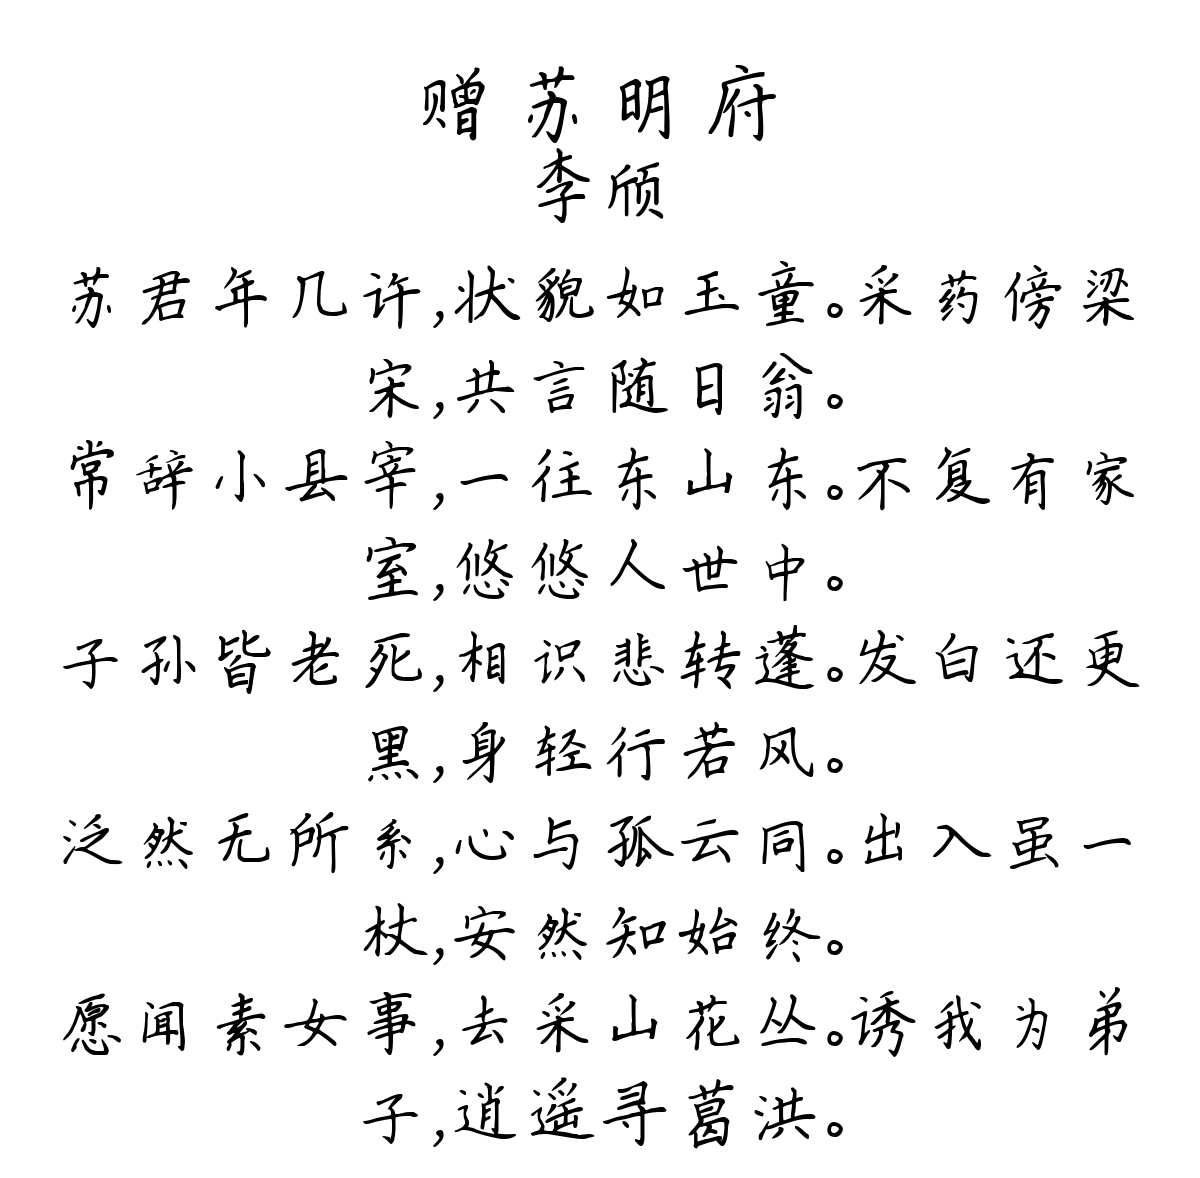 赠苏明府
李颀
苏君年几许,状貌如玉童。采药傍梁
宋,共言随日翁。
常辞小县宰,一往东山东。不复有家
室,悠悠人世中。
子孙皆老死,相识悲转蓬。发白还更
黑,身轻行若风。
泛然无所系,心与孤云同。出入虽一
杖,安然知始终。
愿闻素女事,去采山花丛。诱我为弟
子,逍遥寻葛洪。